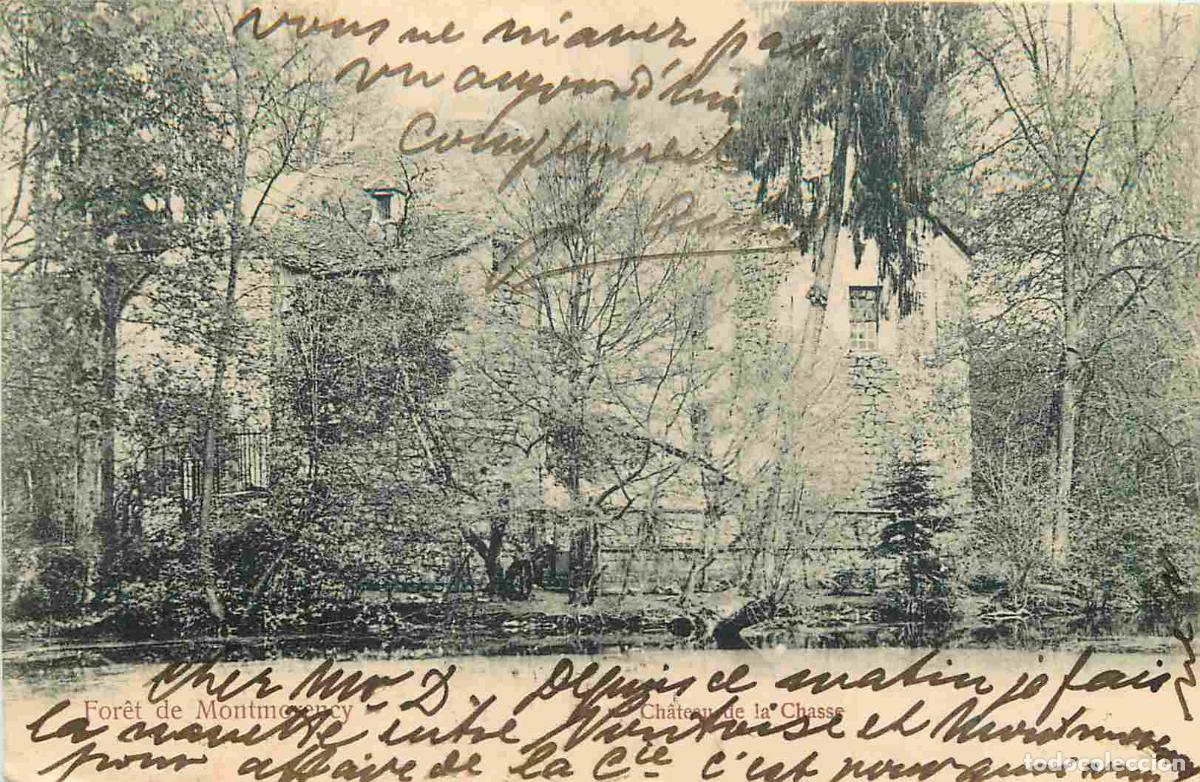 vous ne m'avez pas
vu aujourd'hui
Compliments
Cher Mr D Depuis ce matin je fais
Forêt de Montmorency
Château de la Chasse
la navette entre Pontoise et Montmorency
pour affaire de la Cie c'est pourquoi
todocoleccion